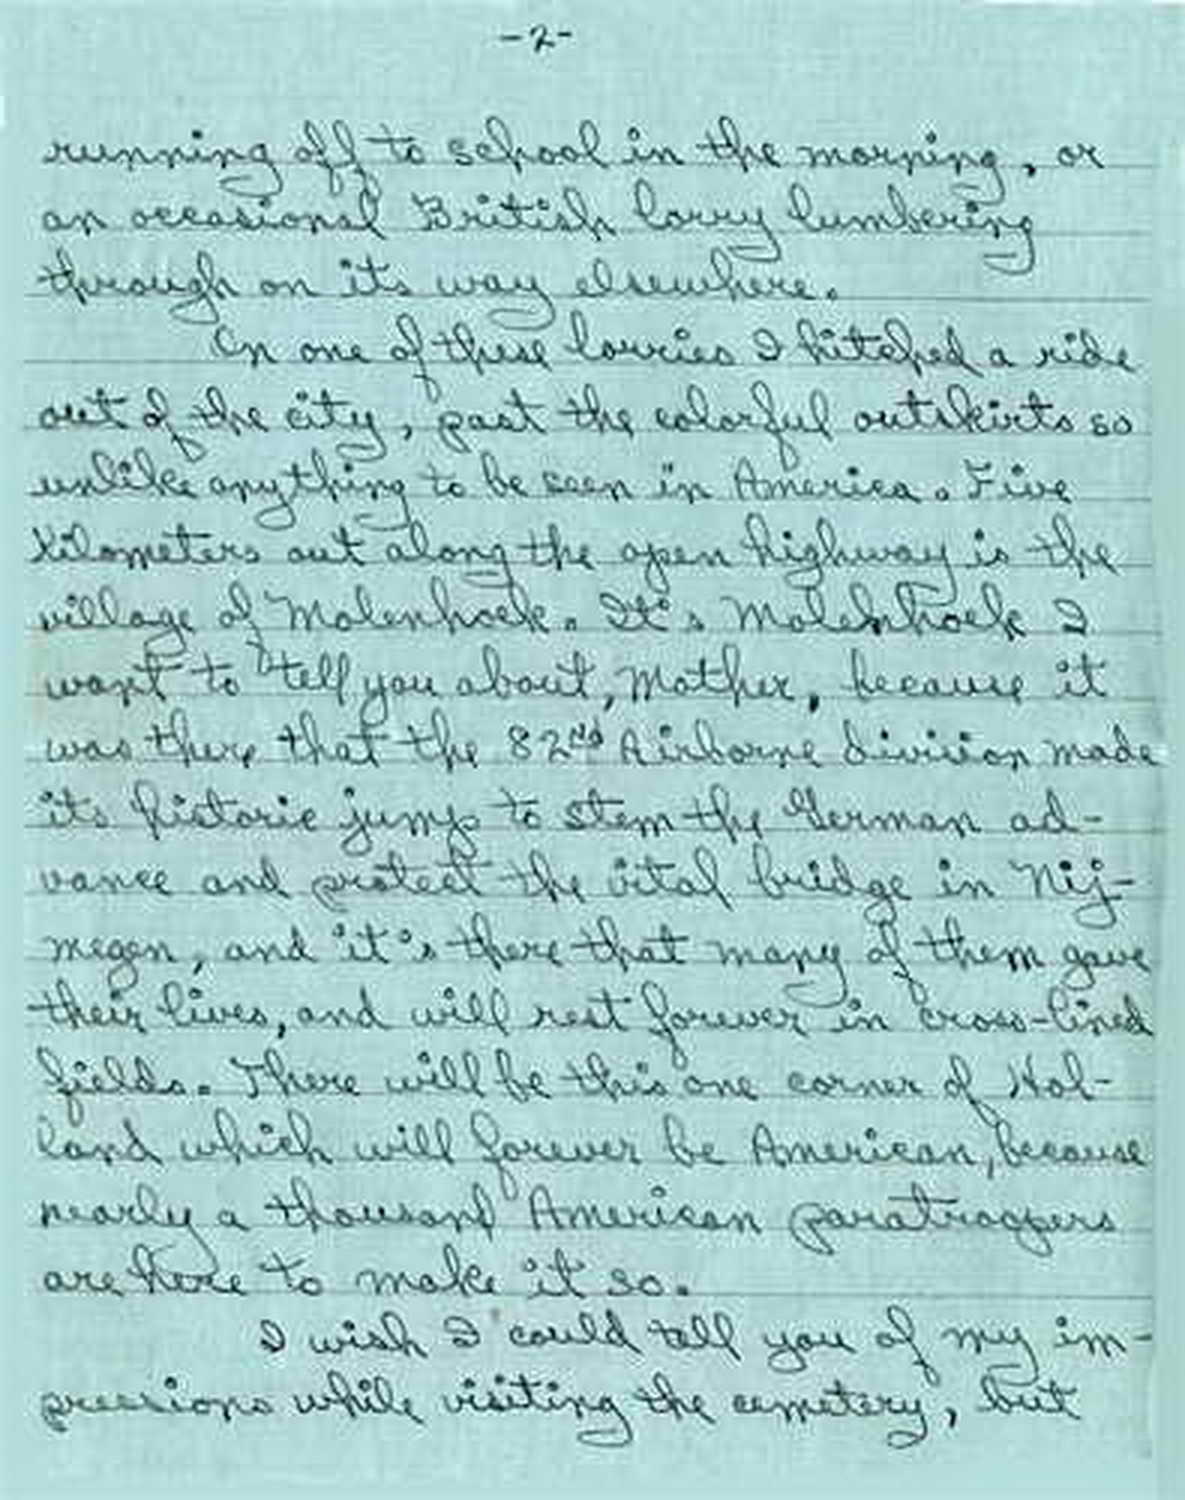 -2-
running off to school in the morning, or
an occasional British lorry lumbering
through on its way elsewhere.
In one of these lorries I hitched a ride
out of the city, past the colorful outskirts so
unlike anything to be seen in America. Five
kilometers out along the open highway is the
village of Molenhoek. It's Molenhoek I
want to tell you about, Mother, because it
was there that the 82nd Airborne division made
its historic jump to stem the German ad-
vance and protect the vital bridge in Nij-
megen, and it's there that many of them gave
their lives, and will rest forever in cross-lined
fields. There will be this one corner of Hol-
land which will forever be American, because
nearly a thousand American paratroopers
are here to make it so.
I wish I could tell you of my im-
pressions while visiting the cemetery, but